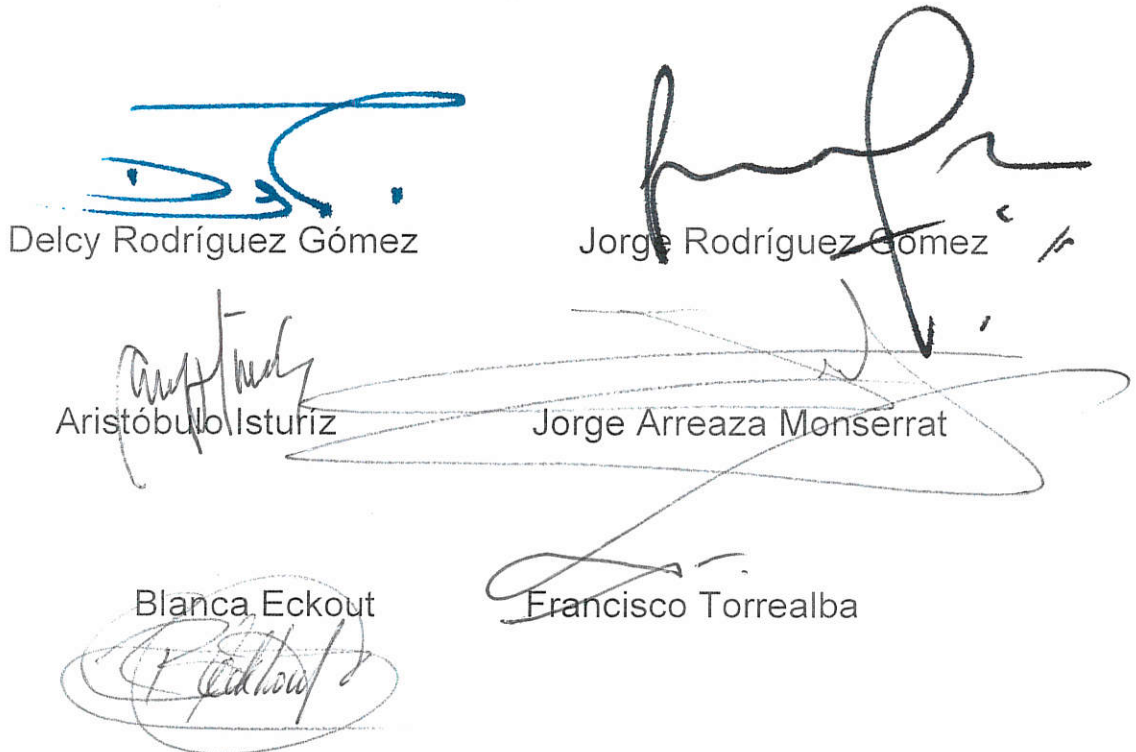 Delcy Rodríguez Gómez Jorge Rodríguez Gómez
Aristóbulo Isturíz Jorge Arreaza Monserrat
Blanca Eckout Francisco Torrealba